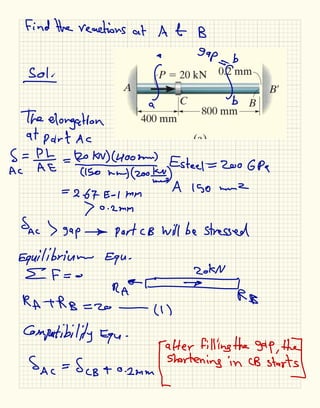 Find the reactions at A & B
gap = b
a
Sol.
P = 20 kN
0.2 mm
A
B'
a
C
b
B
800 mm
400 mm
The elongation
at part AC
δAC = PL/AE = (20 kN)(400 mm)/(150 mm)(200 kN/mm²)
Esteel = 200 GPa
A 150 mm²
= 2.67 E-1 mm
> 0.2 mm
δAC > gap → part CB will be stressed
Equilibrium Equ.
Σ F = 0
20kN
RA
RB
RA + RB = 20 — (1)
Compatibility Equ.
after filling the gap, the
shortening in CB starts
δAC = δCB + 0.2mm